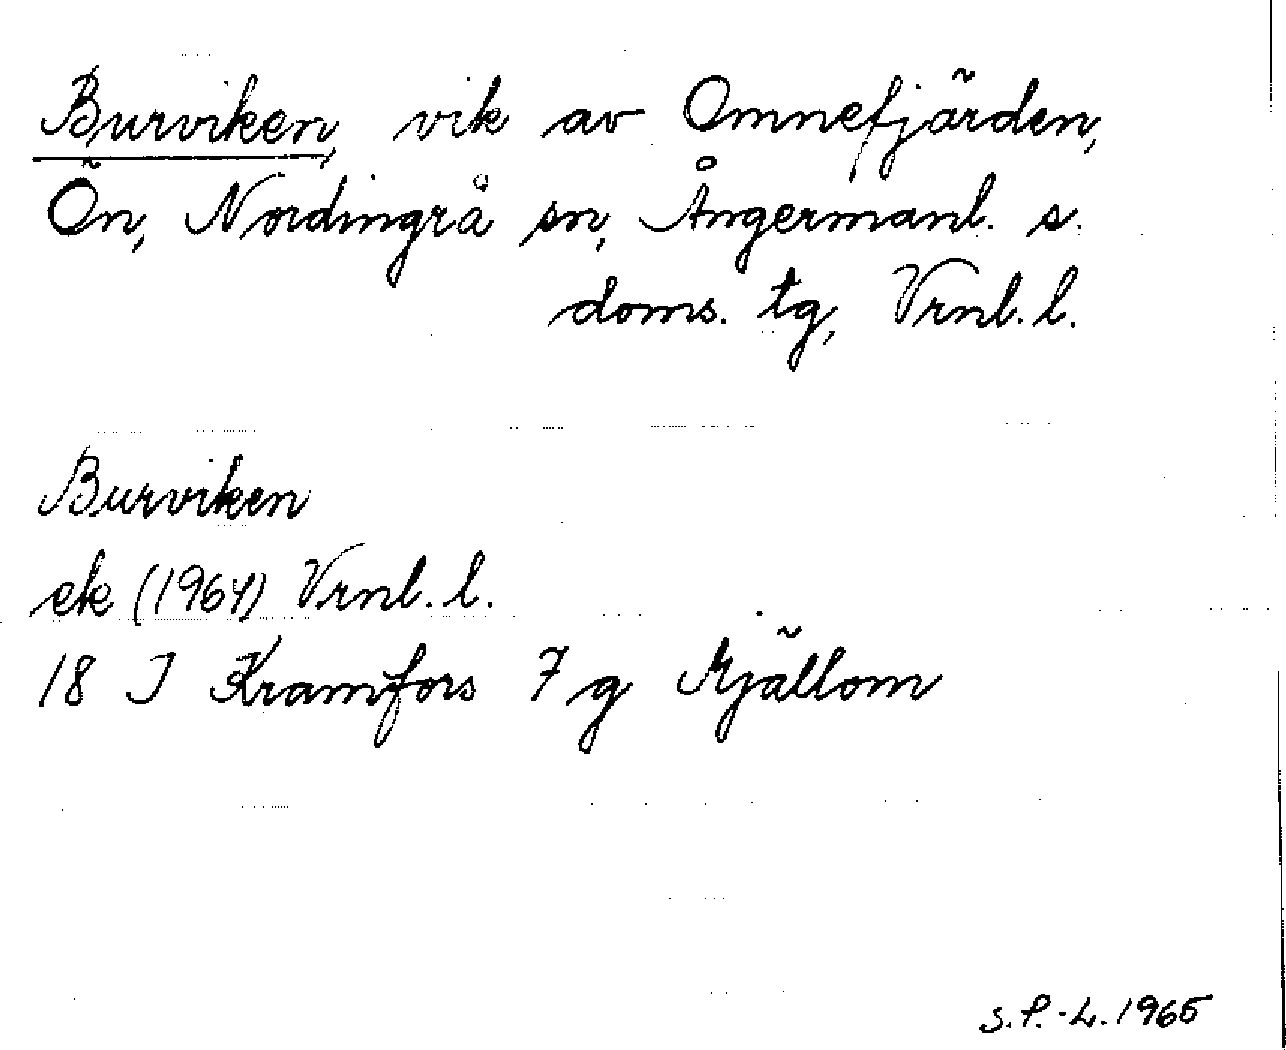 Burviken, vik av Omnefjärden,
Ön, Nordingrå sn, Ångermanl. s.
doms. tg, Vrnl. l.
Burviken
ek (1964) Vrnl. l.
18 J Kramfors 7 g Mjällom
S.P.-L. 1965